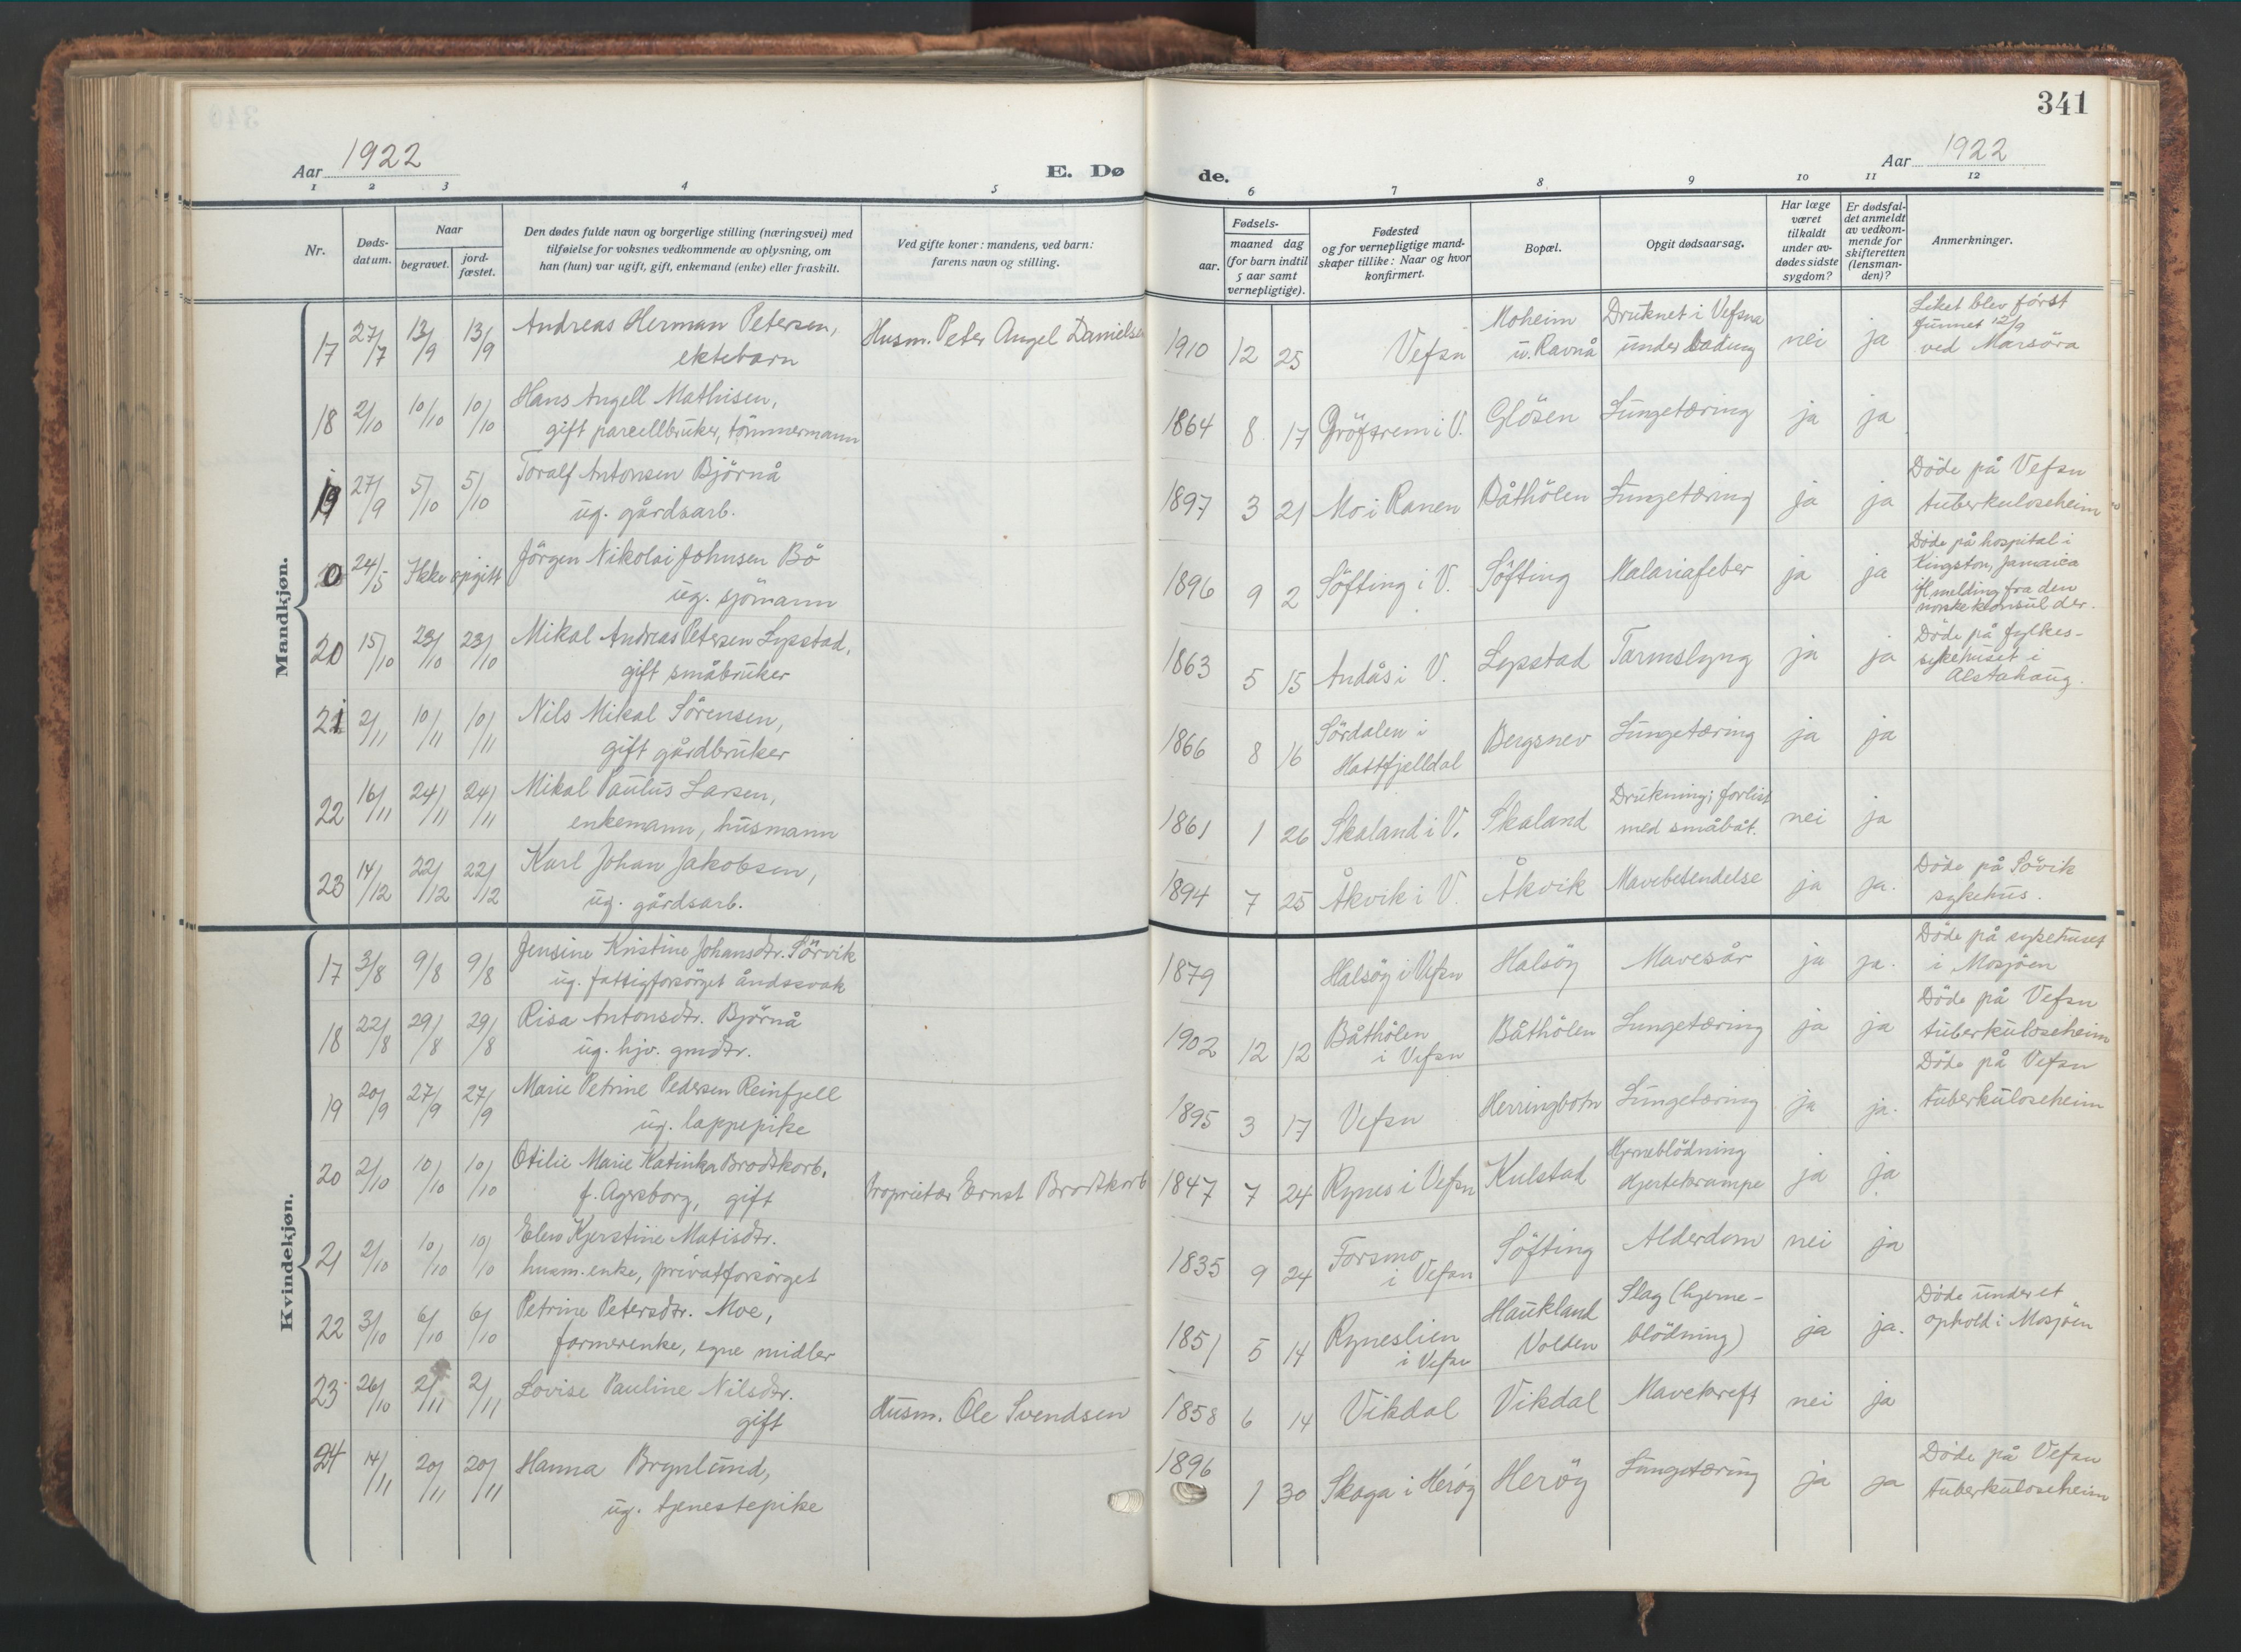 341
Aar 1922
E. Dø
de.
Aar 1922
1 2 3 4 5 6 7 8 9 10 11 12
Nr.
Døds-
datum.
Naar
begravet.
jord-
fæstet.
Den dødes fulde navn og borgerlige stilling (næringsvei) med
tilføielse for voksnes vedkommende av oplysning, om
han (hun) var ugift, gift, enkemand (enke) eller fraskilt.
Ved gifte koner: mandens, ved barn:
farens navn og stilling.
Fødsels-
aar.
maaned dag
(for barn indtil
5 aar samt
vernepligtige).
Fødested
og for vernepligtige mand-
skaper tillike: Naar og hvor
konfirmert.
Bopæl.
Opgit dødsaarsag.
Har læge
været
tilkaldt
under av-
dødes sidste
sygdom?
Er dødsfal-
det anmeldt
av vedkom-
mende for
skifteretten
(lensman-
den)?
Anmerkninger.
Mandkjøn.
17 27/7 13/9 13/9 Andreas Herman Petersen,
ektebarn
Husm. Peter Angel Danielsen
1910 12 25 Vefsn
Moheim
u. Ravnå
Druknet i Vefsna
under badung
nei ja
Liket blev först
funnet 12/9
ved Marsöra
18 2/10 10/10 10/10 Hans Angell Mathisen,
gift parcellbruker, tömmermann
1864 8 17 Gröftrem i V. Glösen Lungetæring ja ja
19 27/9 5/10 5/10 Toralf Antonsen Björnå
ug. gårdsarb.
1897 3 21 Mo i Ranen Båthölen Lungetæring ja ja
Döde på Vefsn
tuberkuloseheim
0 24/5 Ikke opgitt Jörgen Nikolai Johnsen Bö
ug. sjömann
1896 9 2 Söfting i V. Söfting Malariafeber ja ja
Döde på hospital i
Kingston, Jamaica
ifl. melding fra den
norske konsul der.
20 15/10 23/10 23/10 Mikal Andreas Petersen Lysstad,
gift småbruker
1863 5 15 Andås i V. Lysstad Tarmslyng ja ja
Döde på fylkes-
sykehuset i
Alstahaug.
21 2/11 10/11 10/11 Nils Mikal Sörensen,
gift gårdbruker
1866 8 16 Sördalen i
Hattfjelldal
Bergsnev Lungetæring ja ja
22 16/11 24/11 24/11 Mikal Paulus Larsen,
enkemann, husmann
1861 1 26 Skaland i V. Skaland
Drukning; forlist
med småbåt.
nei ja
23 14/12 22/12 22/12 Karl Johan Jakobsen,
ug. gårdsarb.
1894 7 25 Åkvik i V. Åkvik Mavebetendelse ja ja.
Döde på Sövik
sykehus.
Kvindekjøn.
17 3/8 9/8 9/8 Jensine Kristine Johansdtr. Sörvik
ug. fattigforsörget åndssvak
1879 Halsöy i Vefsn Halsöy Mavesår ja ja.
Döde på sykehuset
i Mosjöen
18 22/8 29/8 29/8 Risa Antonsdtr. Björnå
ug. hjv. gmdtr.
1902 12 12 Båthölen
i Vefsn
Båthölen Lungetæring ja ja
Döde på Vefsn
tuberkuloseheim
19 20/9 27/9 27/9 Marie Petrine Pedersen Reinfjell
ug. lappepike
1895 3 17 Vefsn Herringbotn Lungetæring ja ja.
Döde på Vefsn
tuberkuloseheim
20 2/10 10/10 10/10 Otilie Marie Katinka Brodtkorb,
f. Agersborg, gift
Proprietær Ernst Brodtkorb
1847 7 24 Rynes i Vefsn Kulstad
Hjerneblödning
Hjertekrampe
ja ja
21 2/10 10/10 10/10 Elen Kjerstine Matisdtr.
husm.enke, privatforsörget
1835 9 24 Forsmo
i Vefsn
Söfting Alderdom nei ja
22 3/10 6/10 6/10 Petrine Petersdtr. Moe,
farmerenke, egne midler
1851 5 14 Ryneslien
i Vefsn
Haukland
Volden
Slag (hjerne-
blödning)
ja ja.
Döde under et
ophold i Mosjöen
23 26/10 2/11 2/11 Lovise Pauline Nilsdtr.
gift
Husm. Ole Svendsen
1858 6 14 Vikdal Vikdal Mavekreft nei ja
24 14/11 20/11 20/11 Hanna Brynlund,
ug. tjenestepike
1896 1 30 Skaga i Heröy Heröy Lungetæring ja ja
Döde på Vefsn
tuberkuloseheim